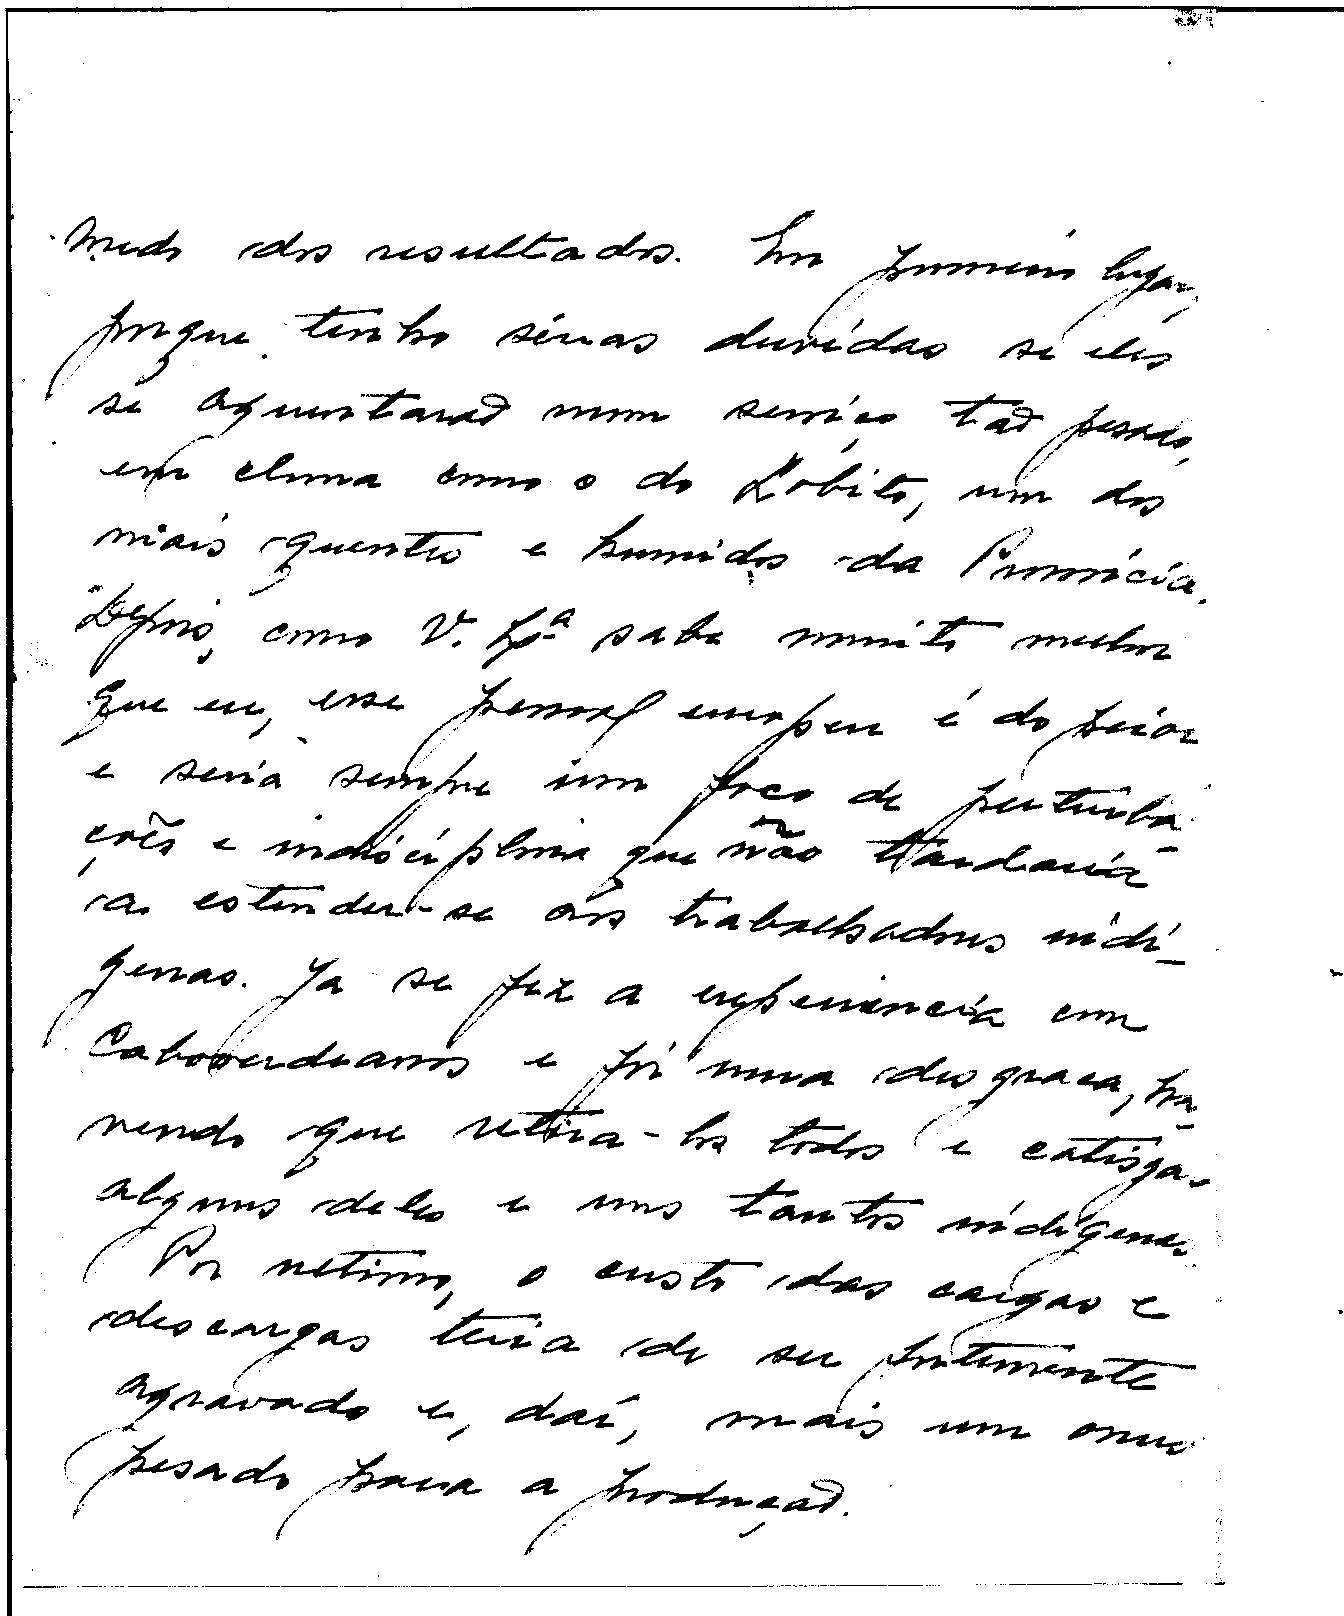 medo dos resultados. Em primeiro lugar,
porque tenho sérias duvidas se eles
se aguentarão num serviço tão pesado,
em clima como o do Lobito, um dos
mais quentes e humidos da Provincia.
Depois, como V. Exª sabe muito melhor
que eu, esse pessoal europeu é do peior
e seria sempre um foco de perturba-
ções e indisciplina que não tardaria
a estender-se aos trabalhadores indi-
genas. Ja se fez a experiencia com
Caboverdeanos e foi uma desgraça, ha-
vendo que retira-los todos e castigar
alguns deles e uns tantos indigenas.
Por ultimo, o custo das cargas e
descargas teria de ser fortemente
agravado e, daí, mais um onus
pesado para a produção.